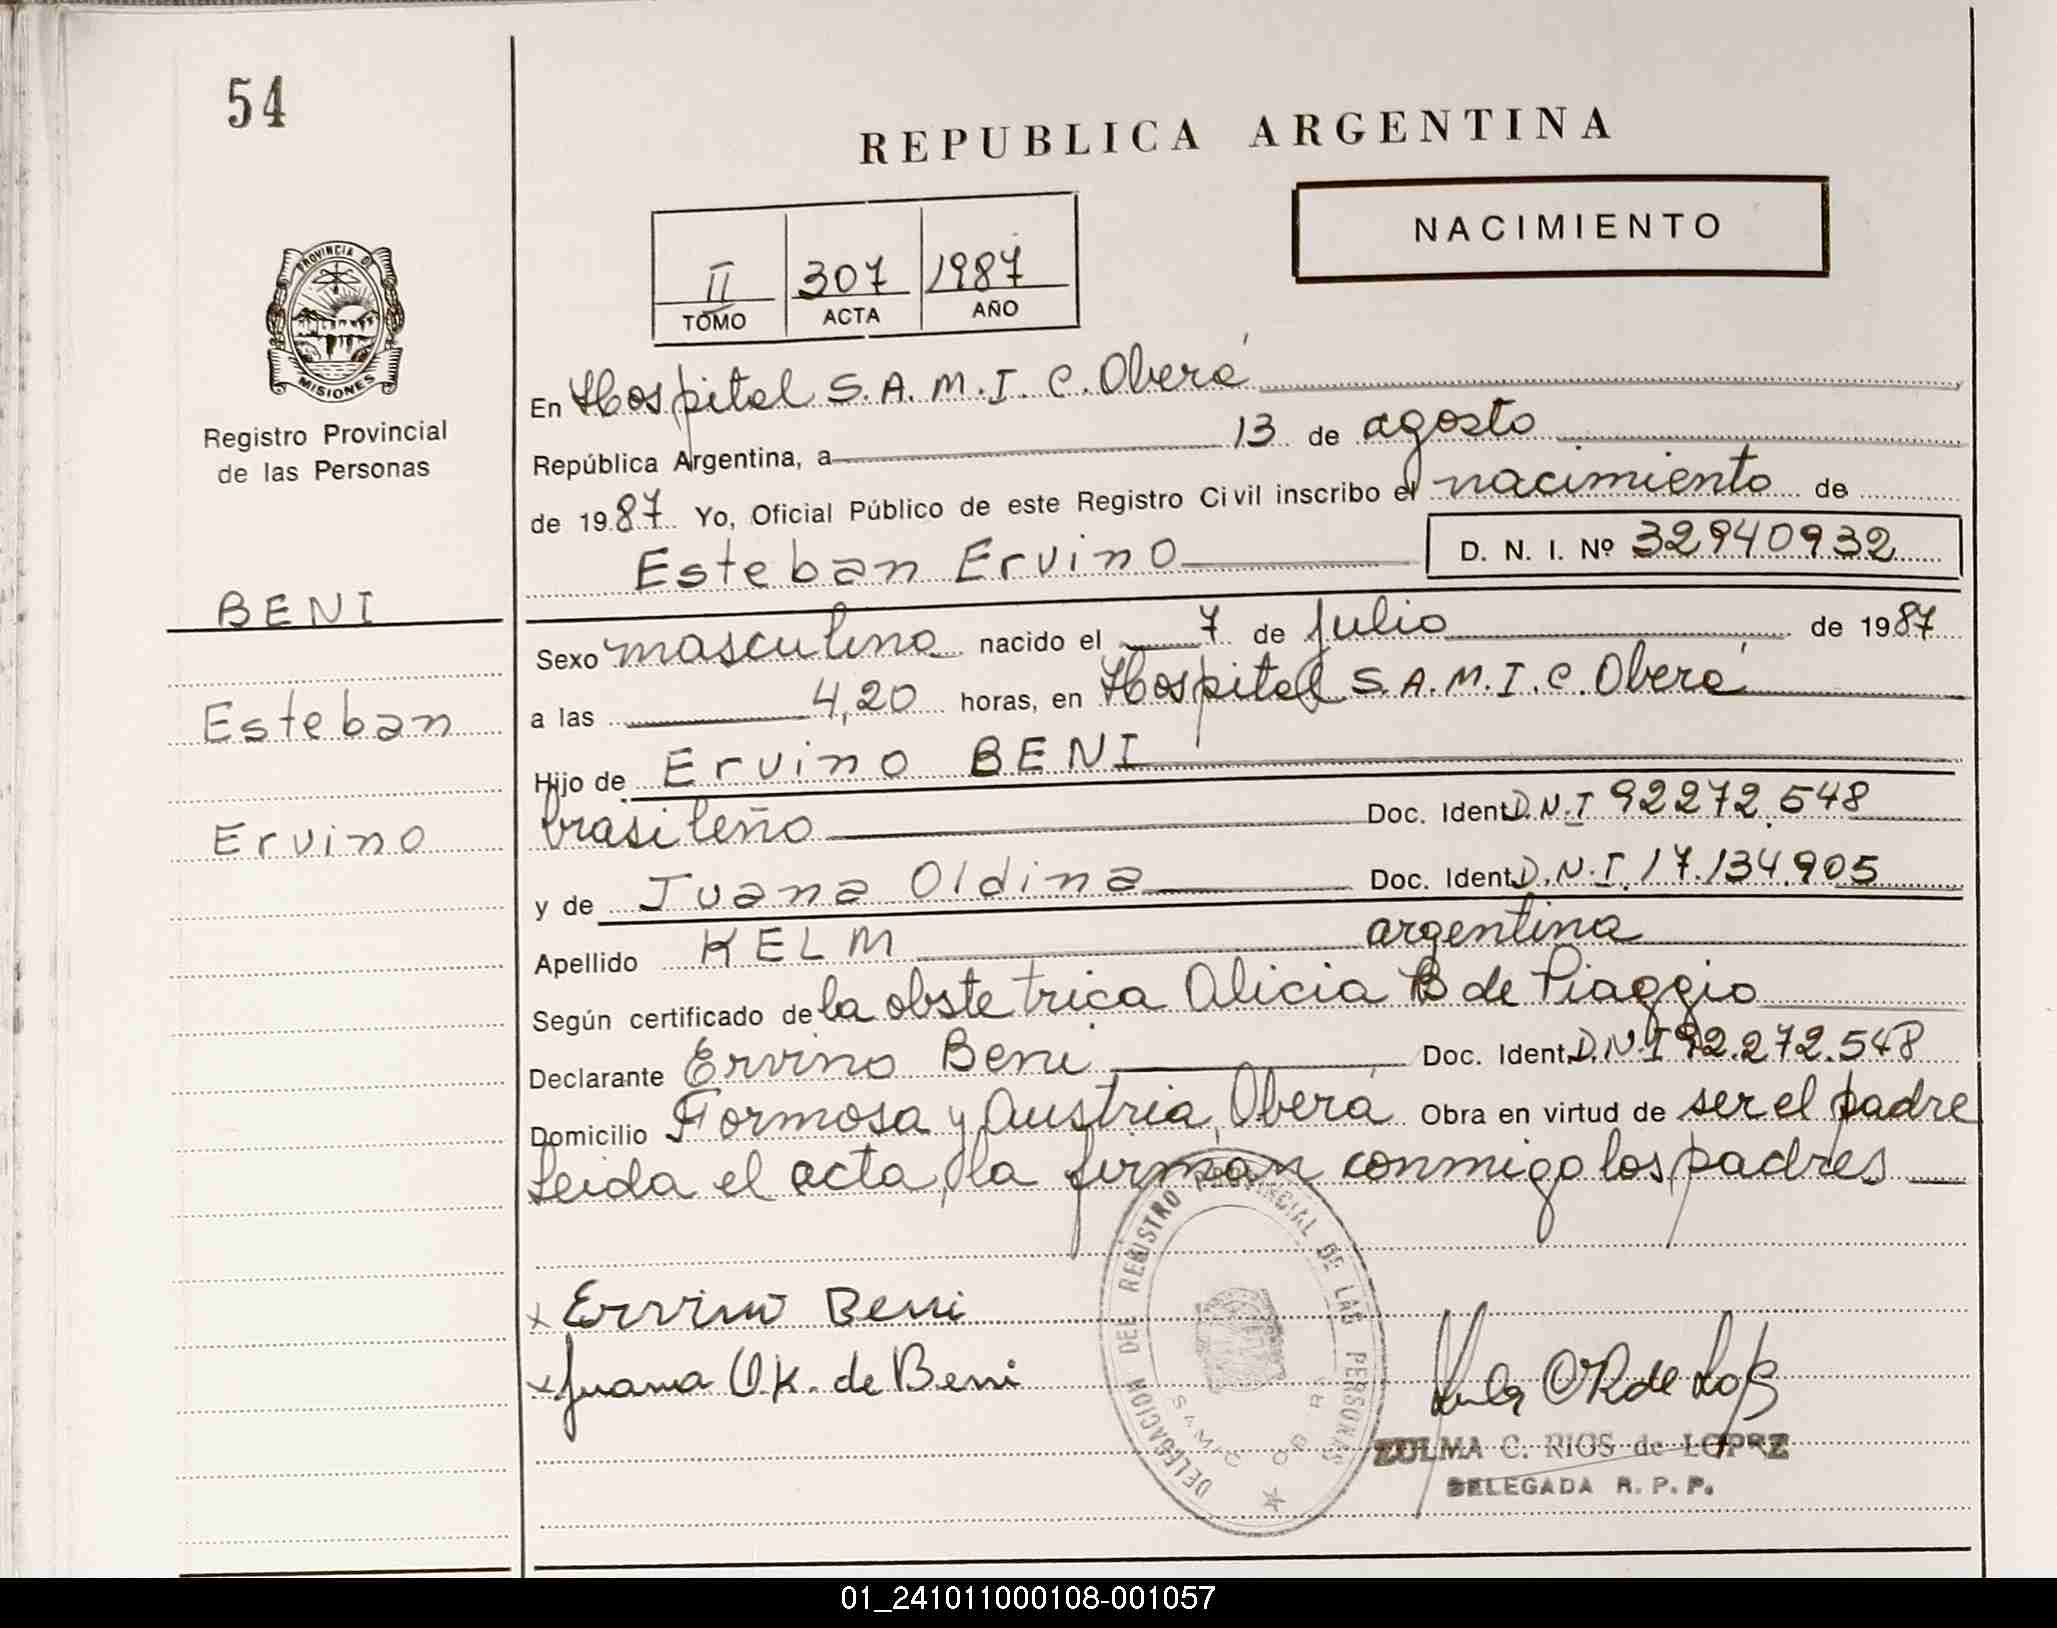 54
REPUBLICA ARGENTINA
NACIMIENTO
II 307 1987
TOMO ACTA AÑO
PROVINCIA DE
MISIONES
Registro Provincial
de las Personas
BENI
Esteban
Ervino
En Hospital S.A.M.I.C. Oberá
República Argentina, a 13 de agosto
de 1987 Yo, Oficial Público de este Registro Civil inscribo el nacimiento de
Esteban Ervino D. N. I. Nº 32940932
Sexo masculino nacido el 7 de julio de 1987
a las 4,20 horas, en Hospital S.A.M.I.C. Oberá
Hijo de Ervino BENI
brasileño Doc. Ident. D.N.I 92272.548
y de Juana Oldina Doc. Ident. D.N.I. 17.134.905
Apellido KELM argentina
Según certificado de la obstetrica Alicia B de Piaggio
Declarante Ervino Beni Doc. Ident. D.N.I 92.272.548
Domicilio Formosa y Austria, Oberá Obra en virtud de ser el padre
Leida el acta, la firman conmigo los padres
x Ervino Beni
x Juana O.K. de Beni
DELEGACION DEL REGISTRO PROVINCIAL DE LAS PERSONAS
ZULMA C. RIOS de LOPEZ
DELEGADA R. P. P.
01_241011000108-001057